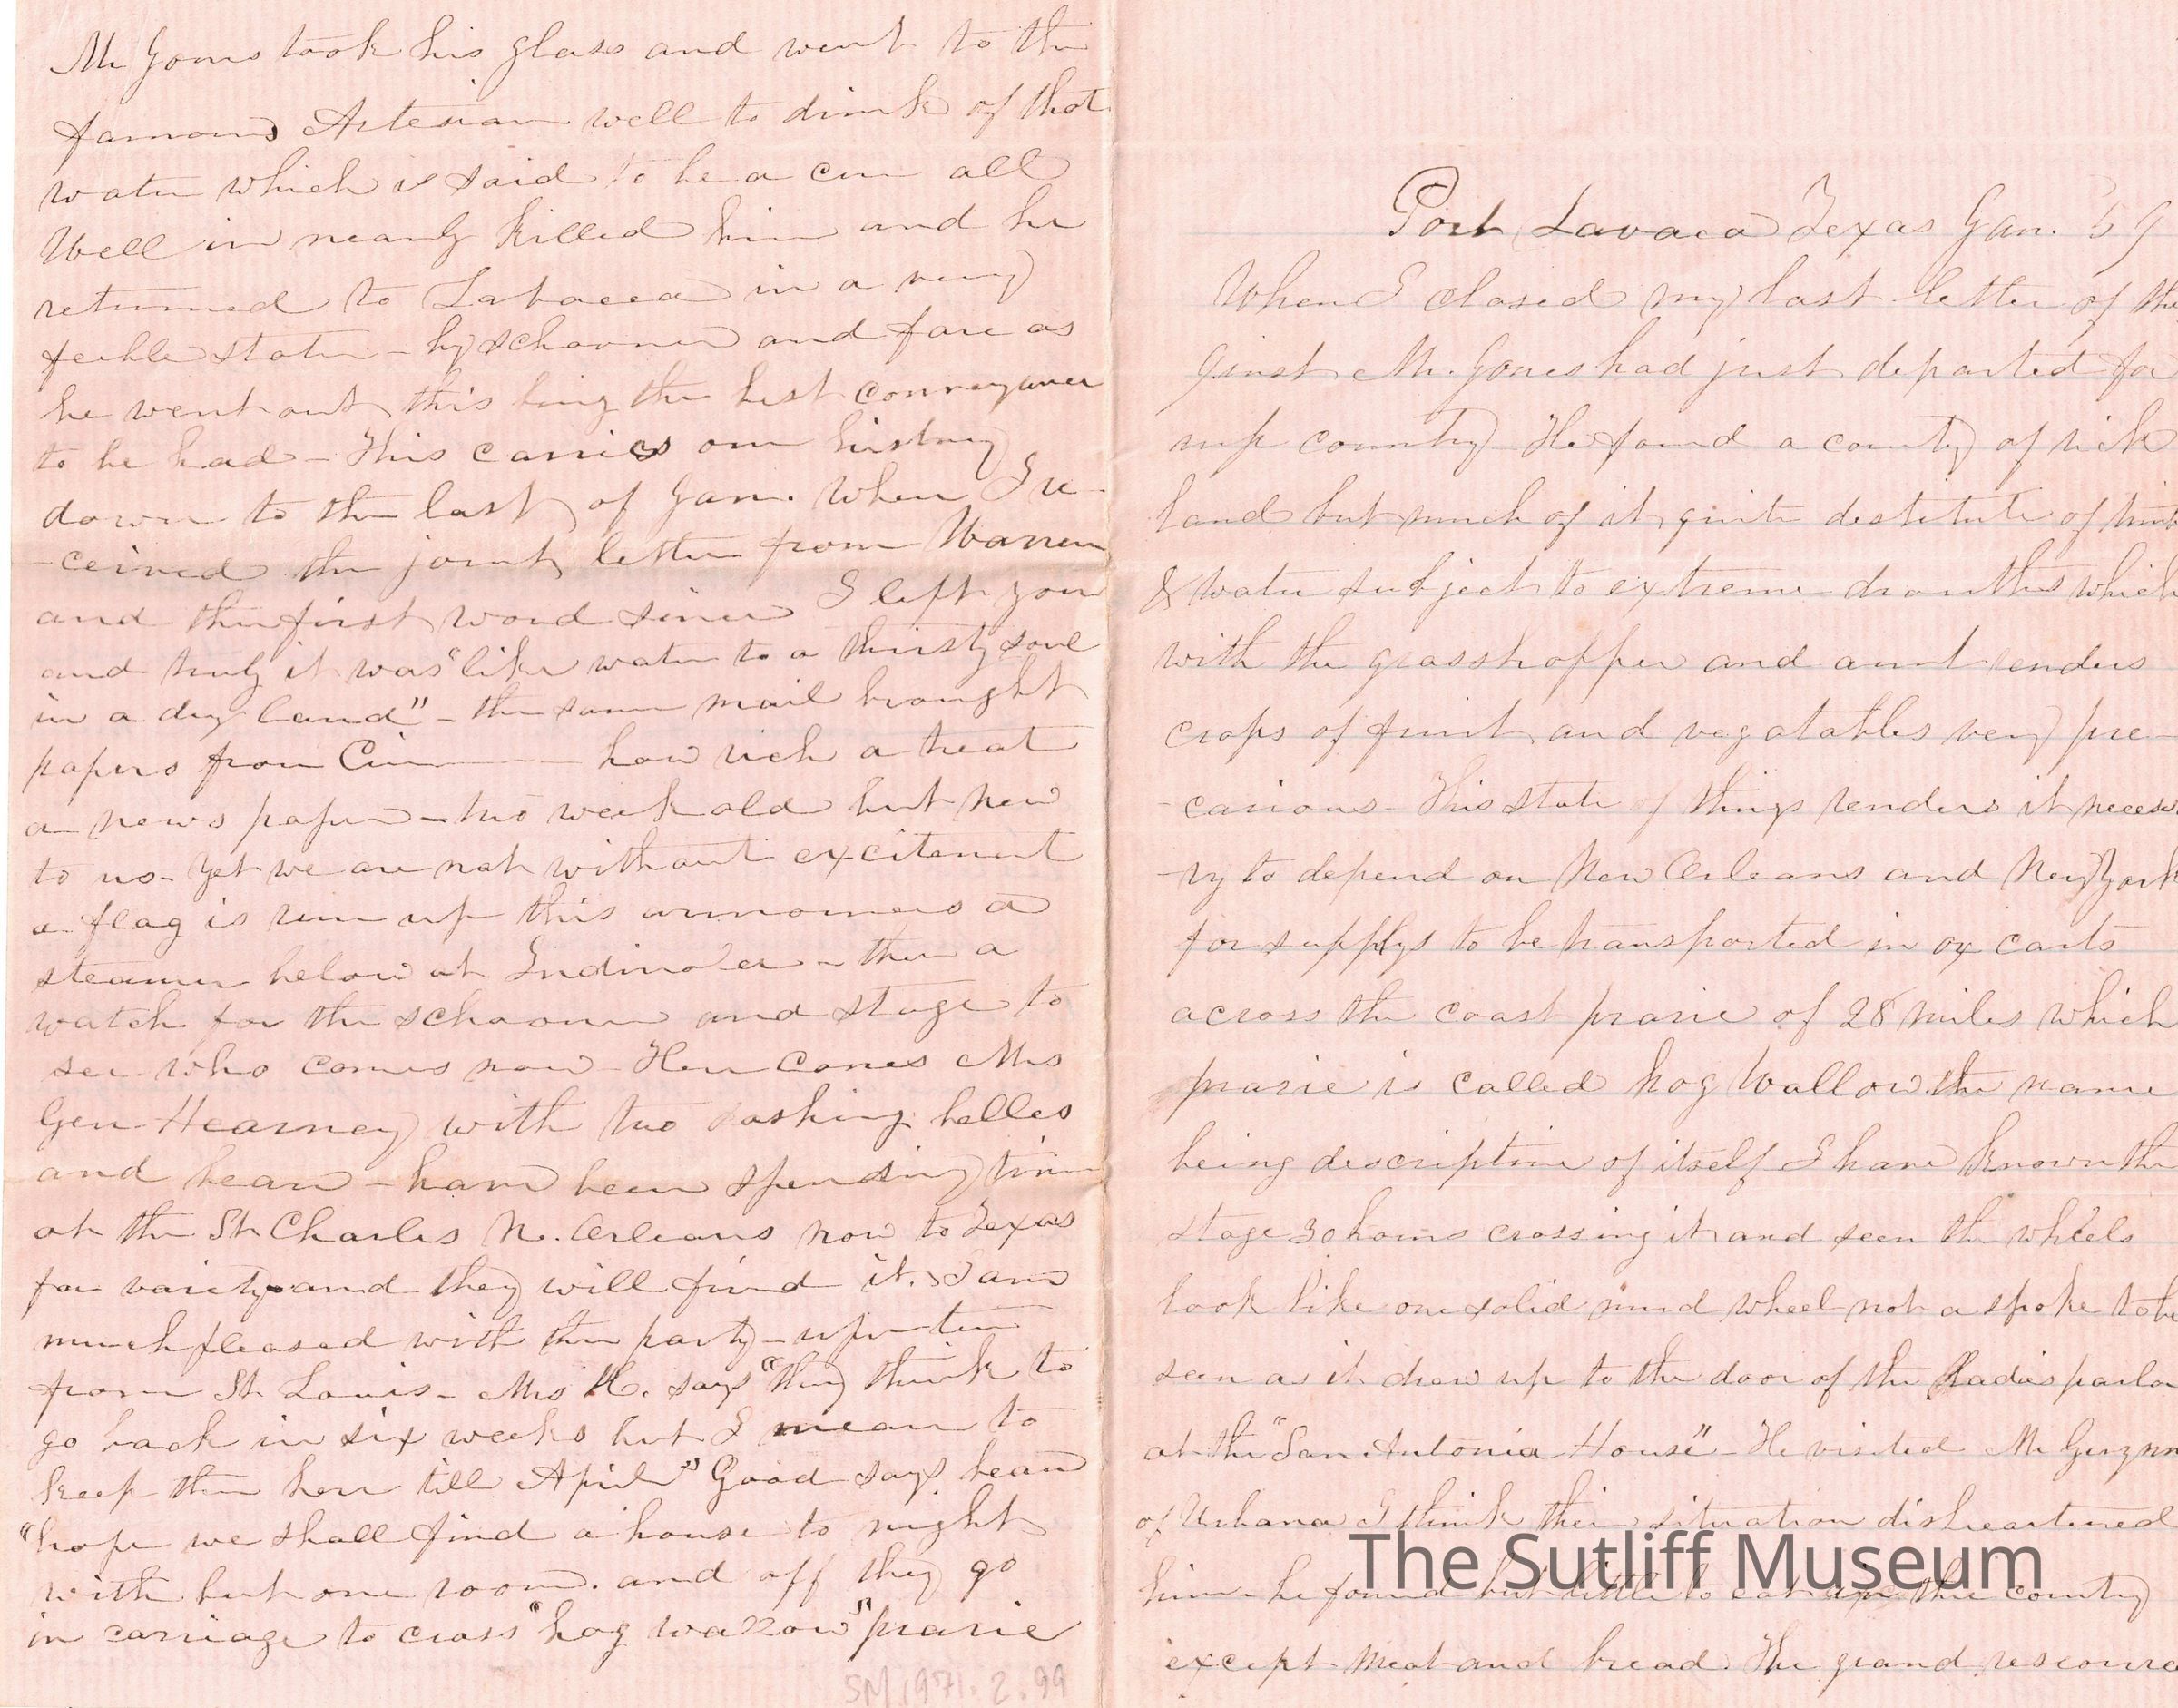 Port Lavaca Texas Jan. 59
When I closed my last letter of the
9 inst Mr. Jones had just departed for
up country He found a county of rich
land but much of it quite destitute of timb
& water subject to extreme drouths which
with the grasshopper and aunt renders
crops of fruit and vegatables very pre-
-carious - This state of things renders it necess
-ry to depend on New Orleans and New York
for supplys to be transported in ox carts
across the coast prarie of 28 miles which
prarie is called hog Wallow the name
being descriptive of itself I have known the
stage 30 hours crossing it and seen the wheels
look like one solid mud wheel not a spoke to be
seen as it drew up to the door of the Ladies parlor
at the "San Antonia House" - He visited Mr
of Urbana I think their situation disheartened
him - he found but little to eat up the country
except meat and bread. The grand resource
Mr Jones took his glass and went to the
famous Artesian well to drink of that
water which is said to be a cure all
Well it nearly killed him and he
returned to Labacca in a very
feeble state - by schooner and fare as
he went out this being the best conveyance
to be had - This carries our history
down to the last of Jan. when I re-
-ceived the joint letter from Warren
and the first word since I left you
and truly it was "like water to a thirsty soul
in a dry land" - the same mail brought
papers from Cin how rich a treat
a news paper - two week old but new
to us - Yet we are not without excitement
a flag is run up this announces a
steamer below at - then a
watch for the schooner and stage to
see who comes now - Here comes Mrs
Gen Hearney with two dashing belles
and beau - have been spending time
at the St Charles N. Orleans now to Texas
for variety and they will find it. I am
much pleased with the party - upper ten
from St Louis - Mrs H. says "they think to
go back in six weeks but I mean to
keep them here till April" Good says beau
"hope we shall find a house to night
with but one room. and off they go
in carriage to cross "hog wallow" prarie
SM 1971.2.99
The Sutliff Museum